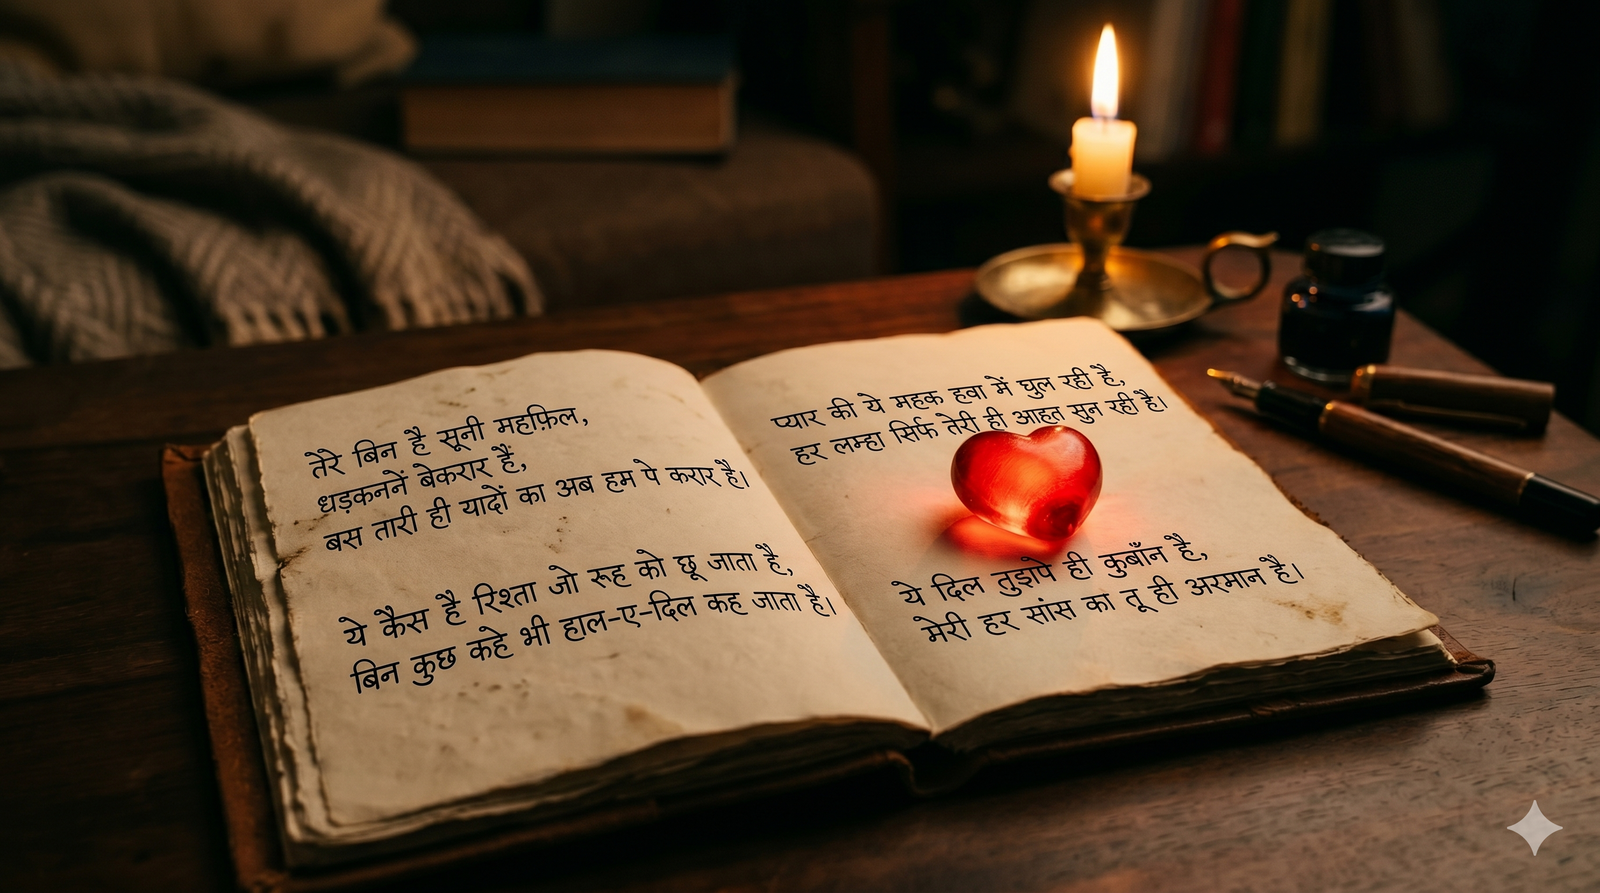 तेरे बिन है सूनी महफ़िल,
धड़कननें बेकरार हैं,
बस तारी ही यादों का अब हम पे करार है।
ये कैस है रिश्ता जो रूह को छू जाता है,
बिन कुछ कहे भी हाल-ए-दिल कह जाता है।
प्यार की ये महक हवा में घुल रही है,
हर लम्हा सिर्फ तेरी ही आहत सुन रही है।
ये दिल तुझपे ही कुबाँन है,
मेरी हर सांस का तू ही अरमान है।